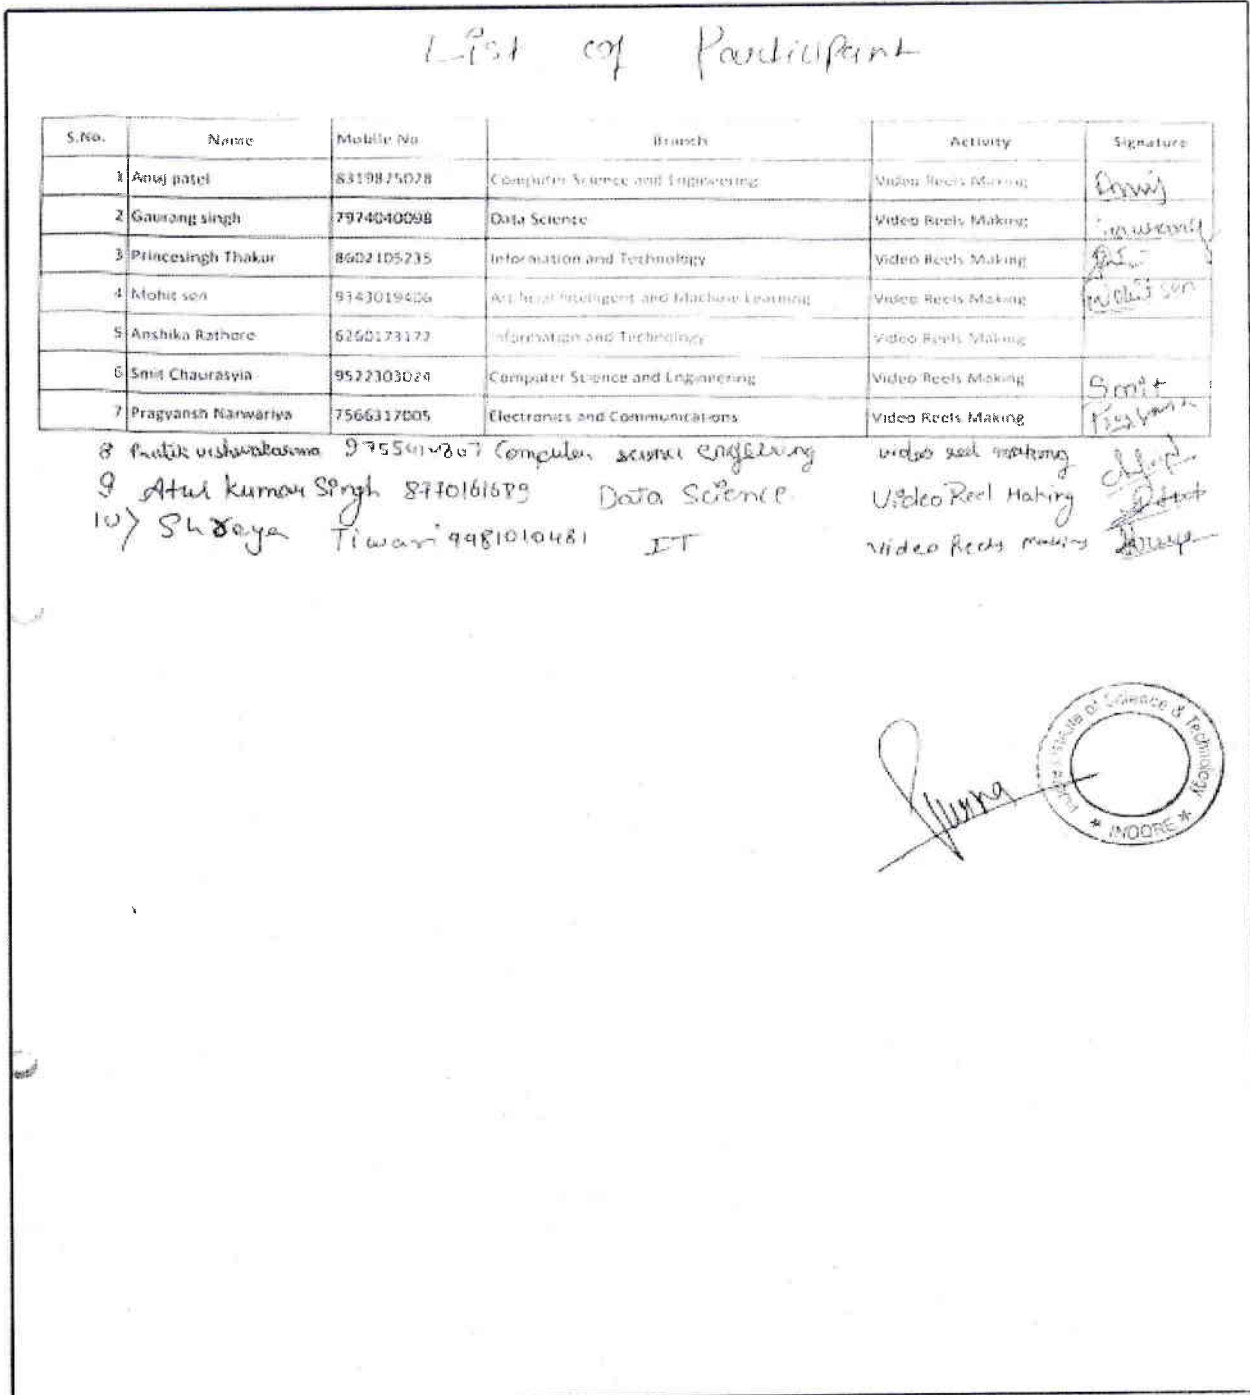 List of Participant
S.No. Name Mobile No Branch Activity Signature
1 Anuj patel 8319825028 Computer Science and Engineering Video Reels Making Anuj
2 Gaurang singh 7974040098 Data Science Video Reels Making Gaurang
3 Princesingh Thakur 8602105235 Information and Technology Video Reels Making
4 Mohit sen 9343019406 Artificial Intelligent and Machine Learning Video Reels Making Mohit sen
5 Anshika Rathore 6260173172 Information and Technology Video Reels Making
6 Smit Chaurasyia 9522303024 Computer Science and Engineering Video Reels Making Smit
7 Pragyansh Narwariya 7566317005 Electronics and Communications Video Reels Making
8 Pratik vishwakarma Computer video reel making
9 Atul Kumar Singh 8770161689 Data Science Video Reel Making
10) Shreya Tiwari 9981010481 IT Video Reels Making
Institute of Science & Technology
* INDORE *